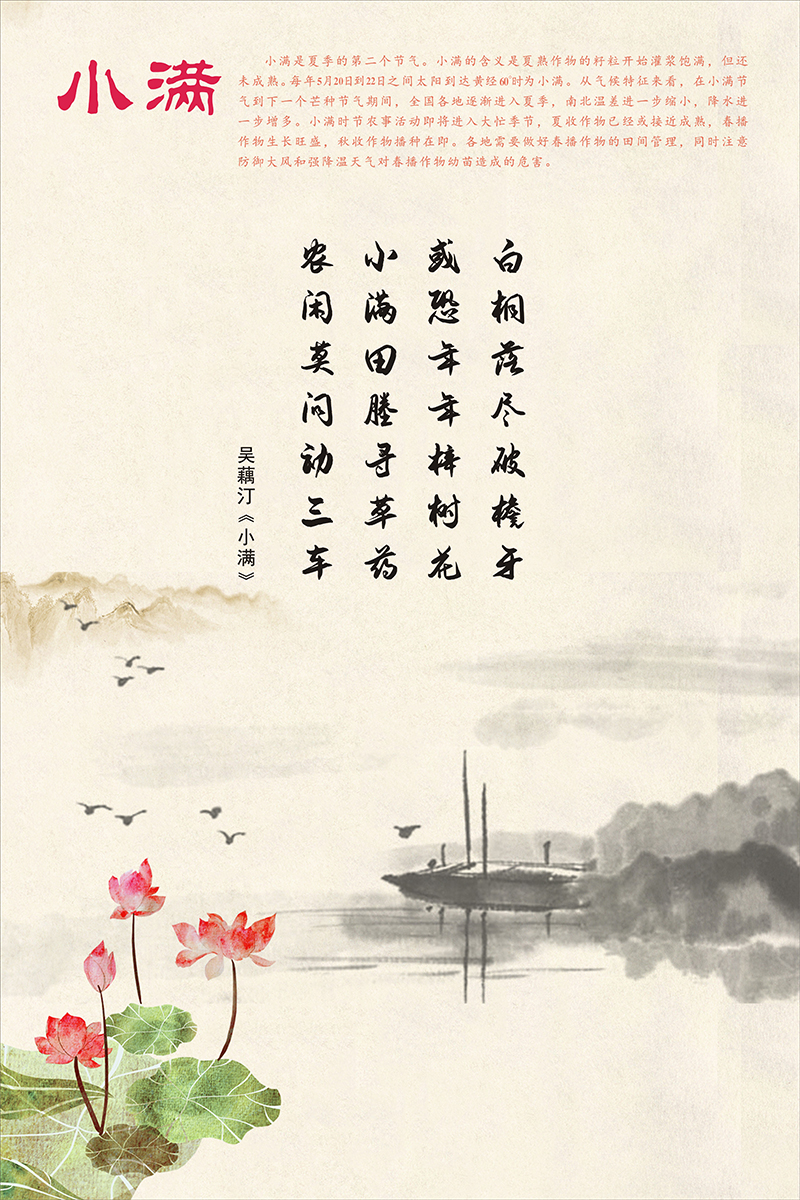 小满
小满是夏季的第二个节气。小满的含义是夏熟作物的籽粒开始灌浆饱满，但还
未成熟。每年5月20日到22日之间太阳到达黄经60°时为小满。从气候特征来看，在小满节
气到下一个芒种节气期间，全国各地还渐进入夏季，南北温差进一步缩小，降水进
一步增多。小满时节农事活动即将进入大忙季节，夏收作物已经或接近成熟，春播
作物生长旺盛，秋收作物播种在即。各地需要做好春播作物的田间管理，同时注意
防御大风和强降温天气对春播作物幼苗造成的危害。
白桐落尽破檐牙
或恐年年梓树花
小满田塍寻草药
农闲莫问动三车
吴藕汀《小满》